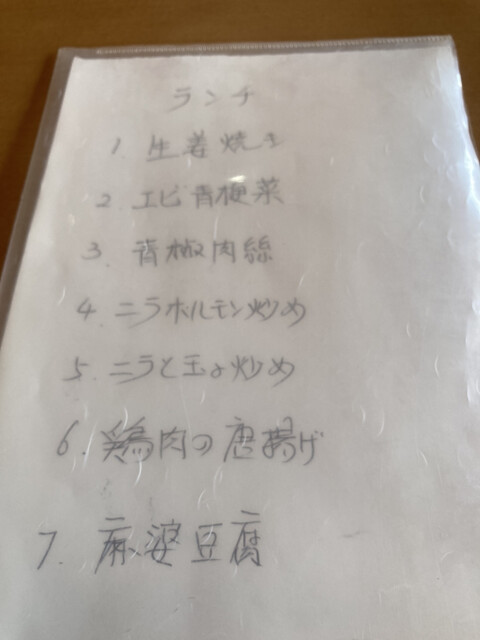 ランチ
1 生姜焼き
2 エビ青梗菜
3. 青椒肉絲
4. ニラホルモン炒め
5. ニラと玉子炒め
6. 鶏肉の唐揚げ
7. 麻婆豆腐